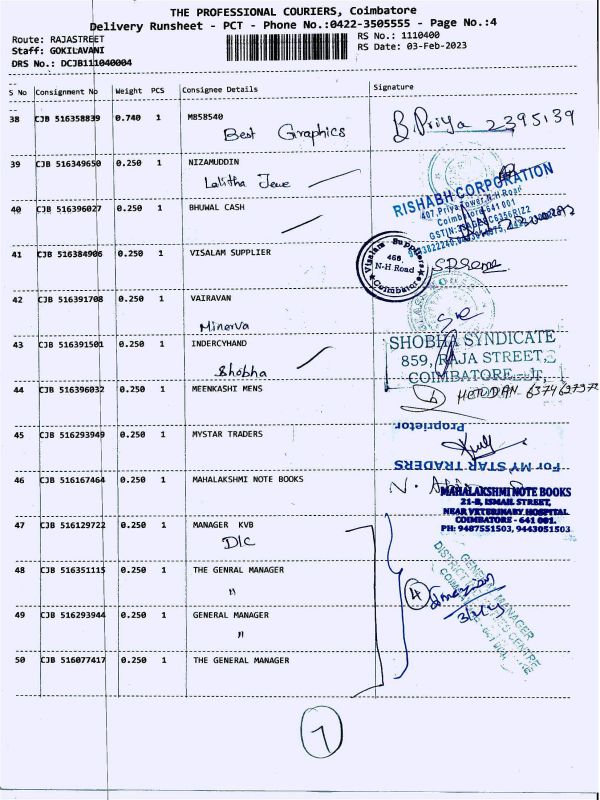 THE PROFESSIONAL COURIERS, Coimbatore
Delivery Runsheet - PCT - Phone No.:0422-3505555 - Page No.:4
Route: RAJASTREET
RS No.: 1110400
Staff: GOKILAVANI
RS Date: 03-Feb-2023
DRS No.: DCJB111040004
S No Consignment No Weight PCS Consignee Details Signature
38 CJB 516358839 0.740 1 M858540
Best Graphics B.Priya 2395139
39 CJB 516349650 0.250 1 NIZAMUDDIN
Lalitha
RISHABH CORPORATION
407, Priya Tower, N.H Road
Coimbatore 641 001
40 CJB 516396027 0.250 1 BHUWAL CASH
41 CJB 516384906 0.250 1 VISALAM SUPPLIER
Visalam Suppliers
466,
N-H Road
Coimbatore
42 CJB 516391708 0.250 1 VAIRAVAN
Minerva
43 CJB 516391501 0.250 1 INDERCYHAND
Shobha
SHOBHA SYNDICATE
859, RAJA STREET,
COIMBATORE
44 CJB 516396032 0.250 1 MEENKASHI MENS
45 CJB 516293949 0.250 1 MYSTAR TRADERS
Proprietor
For MY STAR TRADERS
46 CJB 516167464 0.250 1 MAHALAKSHMI NOTE BOOKS
MAHALAKSHMI NOTE BOOKS
21-B, ISMAIL STREET,
NEAR VETERINARY HOSPITAL
COIMBATORE - 641 001.
PH: 9487551503, 9443051503
47 CJB 516129722 0.250 1 MANAGER KVB
DIC
48 CJB 516351115 0.250 1 THE GENRAL MANAGER
"
4
GENERAL MANAGER
49 CJB 516293944 0.250 1 GENERAL MANAGER
"
50 CJB 516077417 0.250 1 THE GENERAL MANAGER
7